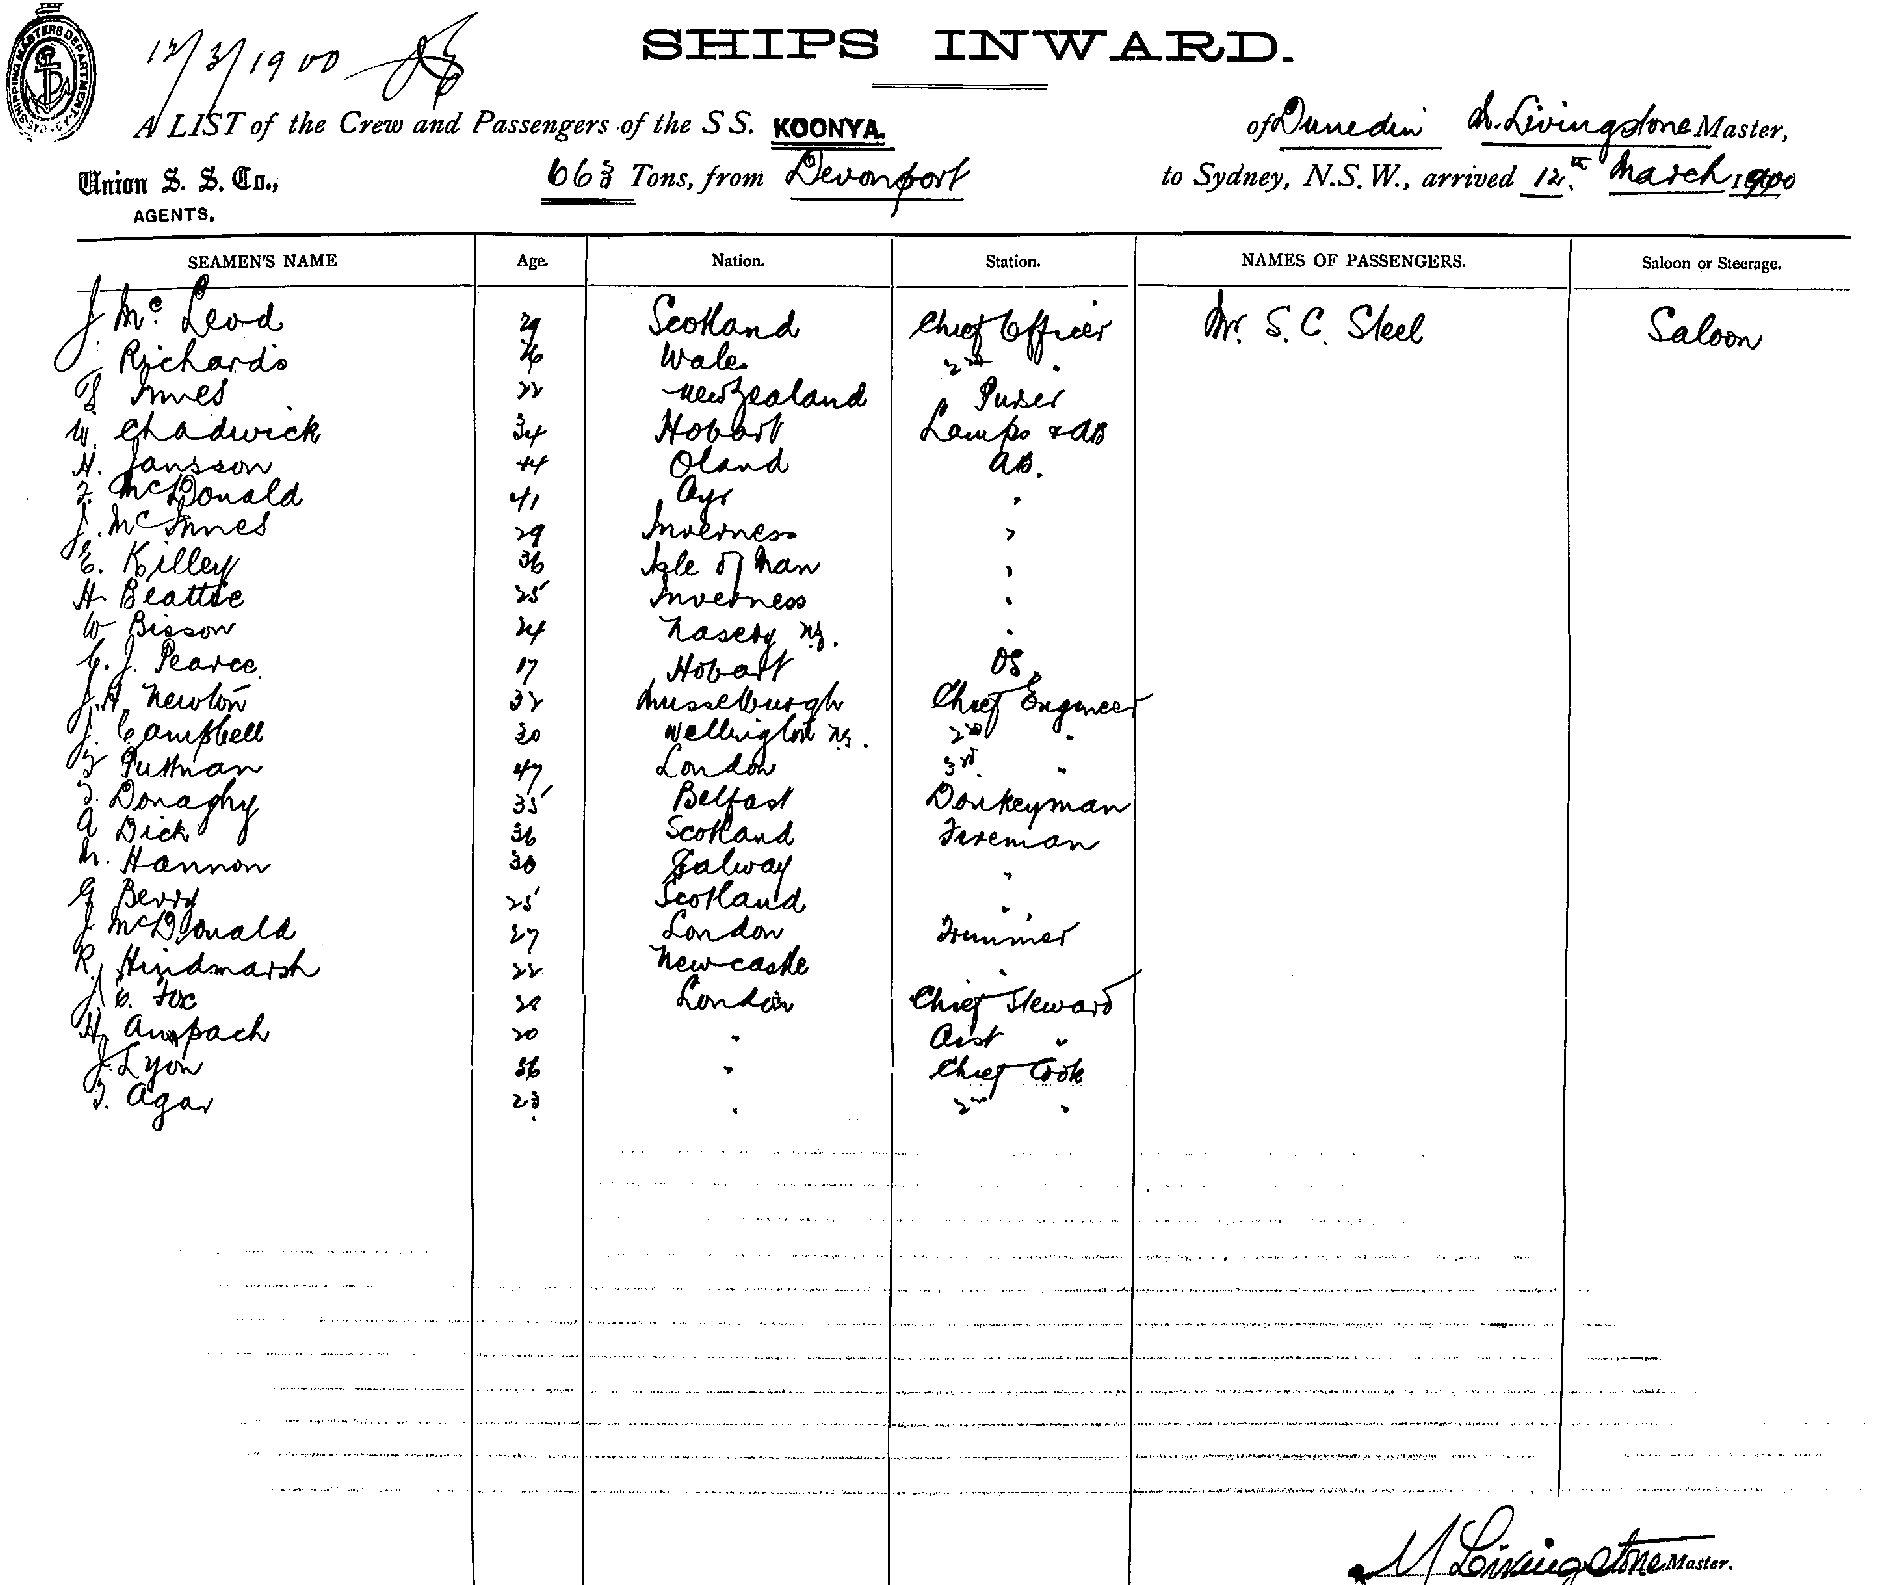 12/3/1900
SHIPS INWARD.
A LIST of the Crew and Passengers of the S S. KOONYA. of Dunedin M. Livingstone Master,
Union S. S. Co., AGENTS. 663 Tons, from Devonport to Sydney, N.S.W., arrived 12th March 1900
SEAMEN'S NAME Age. Nation. Station. NAMES OF PASSENGERS. Saloon or Steerage.
J McLeod 29 Scotland Chief Officer Mr. S. C. Steel Saloon
Richards 26 Wales 2nd "
Innes 22 New Zealand Purser
W. Chadwick 34 Hobart Lamps & AB
H. Jansson 44 Oland AB.
McDonald 41 Ayr "
J. McInnes 29 Inverness "
E. Killey 36 Isle of Man "
H. Beattie 25 Inverness "
W Bisson 24 Naseby NZ. "
C. J. Pearce 17 Hobart OS.
J. H. Newton 32 Musselburgh Chief Engineer
J. Campbell 30 Wellington NZ. 2nd "
Puttman 47 London 3rd "
Donaghy 35 Belfast Donkeyman
A Dick 36 Scotland Fireman
M. Hannon 30 Galway "
G Berry 25 Scotland "
J. McDonald 27 London Trimmer
R. Hindmarsh 22 Newcastle "
J. C. Fox 28 London Chief Steward
H. Anspach 20 " Asst "
J. Lyon 36 " Chief Cook
Agar 23 " 2nd "
M Livingstone Master.